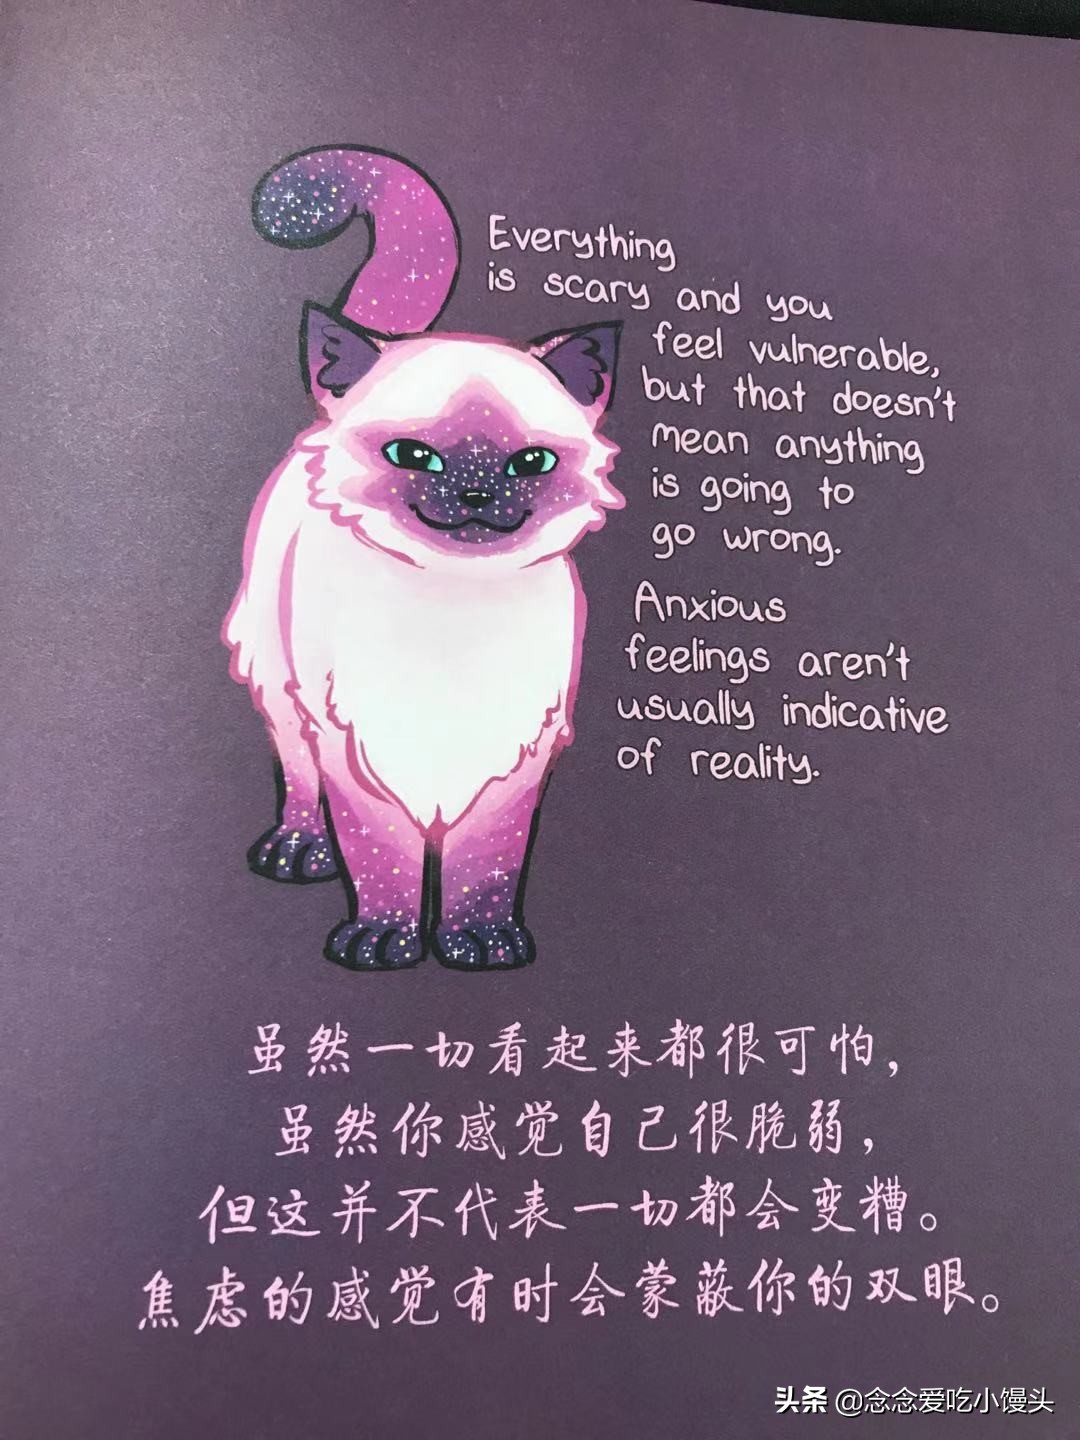 Everything
is scary and you
feel vulnerable,
but that doesn't
mean anything
is going to
go wrong.
Anxious
feelings aren't
usually indicative
of reality.
虽然一切看起来都很可怕，
虽然你感觉自己很脆弱，
但这并不代表一切都会变糟。
焦虑的感觉有时会蒙蔽你的双眼。
头条 @念念爱吃小馒头